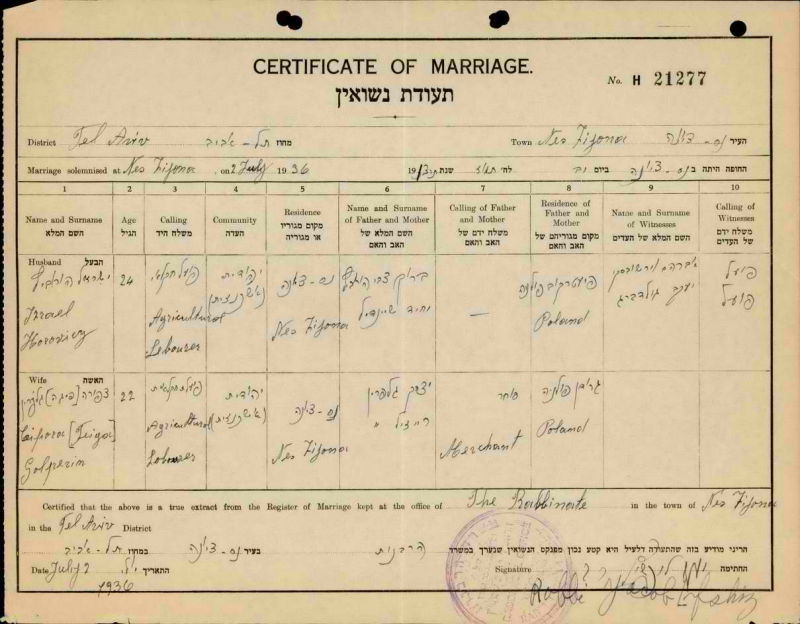 CERTIFICATE OF MARRIAGE.
No. H 21277
תעודת נשואין
District Tel Aviv מחוז תל-אביב Town Nes Zijona העיר נס-ציונה
Marriage solemnised at Nes Zijona on 2 July 1936 החופה היתה ב נס-ציונה ביום
1 2 3 4 5 6 7 8 9 10
Name and Surname השם המלא
Age הגיל
Calling משלח היד
Community העדה
Residence מקום מגוריו או מגוריה
Name and Surname of Father and Mother השם המלא של האב והאם
Calling of Father and Mother משלח ידם של האב והאם
Residence of Father and Mother מקום מגוריהם של האב והאם
Name and Surname of Witnesses השם המלא של העדים
Calling of Witnesses משלח ידם של העדים
Husband הבעל
ישראל
Izrael
Horovicz
24
Agricultural
Lebourer
יהודית
(אשכנזית)
נס-ציונה
Nes Zijona
—
פולניה
Poland
יעקב גולדברג
פועל
פועל
Wife האשה
צפורה [פייגה] גלפרין
Caipora [Feiga]
Golperin
22
Agricultural
Lobourer
יהודית
(אשכנזית)
נס-ציונה
Nes Zijona
יצחק גלפרין
סוחר
Merchant
פולניה
Poland
Certified that the above is a true extract from the Register of Marriage kept at the office of The Rabbinate in the town of Nes Zijona
in the Tel Aviv District
הריני מודיע בזה שהתעודה דלעיל היא קטע נכון מפנקס הנשואין שנערך במשרד הרבנות בעיר נס-ציונה במחוז תל-אביב
Date July 2 1936 התאריך
Signature החתימה
Rabbi Jacob Lifshiz